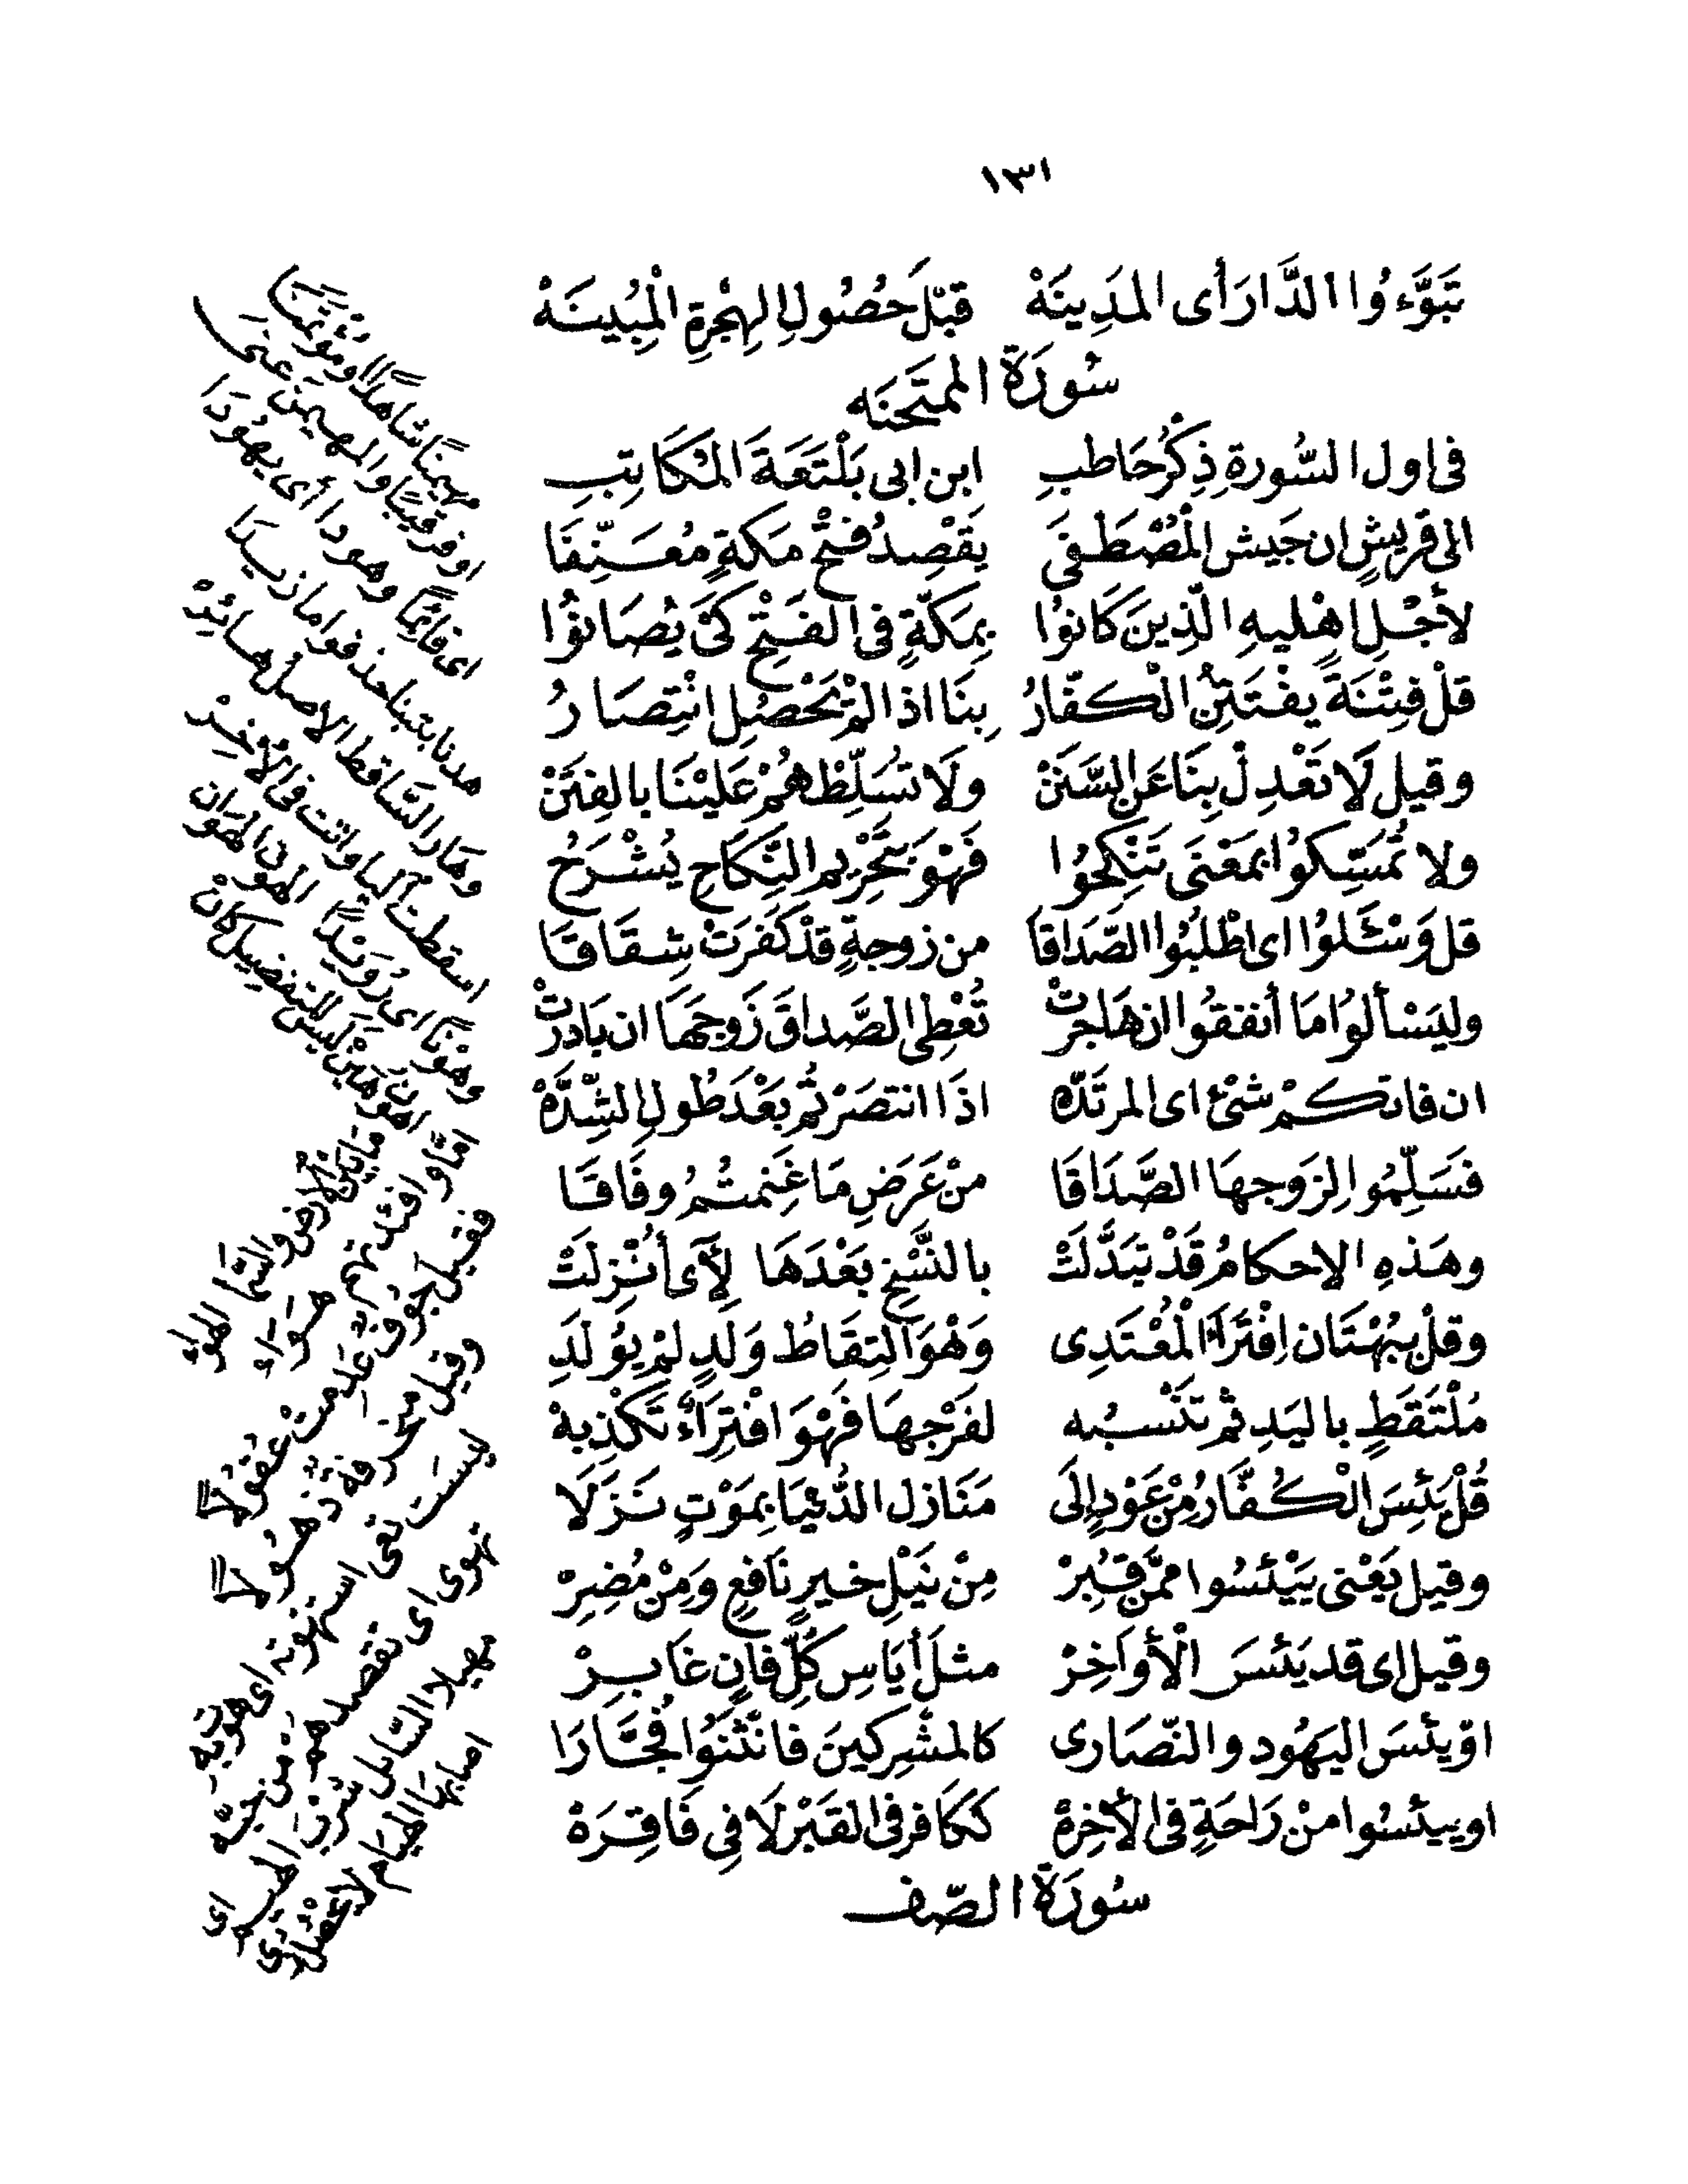 ١٣١
تَبَوَّءُوا الدَّارَ أى المَدِينَهْ قَبْلَ حُصُولِ الهِجْرَةِ الْمُبِينَهْ
سُورَةُ الممتَحنَه
فى اول السُّورةِ ذِكْرُ حَاطبِ ابن ابى بَلْتَعَةَ المُكَاتِبِ
الى قريشٍ ان جَيش المُصْطَفَى يَقْصِدُ فتْحَ مَكةٍ مُعَنِّفَا
لأجْلِ اهْليهِ الَّذِينَ كَانوُا بِمَكَّةٍ فى الفَتْحِ كَىْ يُصَانوُا
قلْ فِتْنَةً يفْتَتِنُ الْكفّارُ بِنَا اذا لمْ يَحْصُلِ انْتِصَارُ
وقيل لَا تَعْدِلْ بِنَا عَنِ السَّنَنْ ولَا تُسَلِّطْهُمْ عَلَيْنَا بالفِتَنْ
ولا تُمْسِّكوُا بمَعْنَى تَنْكِحُوا فَهْوَ بتَحْرِيمِ النِّكَاحِ يُشْرَحُ
قل وَسْئَلوُا اى اطْلُبُوا الصَّدَاقَا من زوجةٍ قدْ كَفَرَتْ شِقَاقَا
وليَسْألوُا مَا أنفقُوا ان هَاجرتْ تُعْطِى الصَّداقَ زَوجَهَا ان بَادرتْ
ان فاتكمْ شىْئ اى المرتَدّه اذَا انتصَرْتُم بَعْدَ طُولِ الشِّدَّهْ
فَسَلِّمُوا لِزَوجهَا الصَّدَاقَا منْ عَرَضِ مَا غَنِمتُمُ وفَاقَا
وهَذهِ الاحكامُ قَدْ تبَدَّلَتْ بالنَّسْخِ بَعْدَهَا لِآَىٍ أُنْزِلَتْ
وقلْ بِبُهْتَان اِفْتَرَاَءَ الْمُعْتَدِى وَهْوَ الْتِقَاطُ وَلَدٍ لمْ يوُلَدِ
مُلْتَقَطٍ باليَدِ ثم تَنْسبُه لفَرْجهَا فَهْوَ افْتِرَاءٌ تَكْذِبهْ
قُلْ يَئِسَ الْكُفَّارُ مِنْ عَوْدٍ إلَى مَنَازل الدُّنْيَا بِمَوْتٍ نَزَلَا
وقيل يَعْنى يَيْئَسُوا ممَّن قُبِرْ مِنْ نَيْلِ خيرٍ نَافعٍ وَمِنْ مُضِرْ
وقيل اى قد يَئسَ الْأوَاخِرْ مثلَ أيَاسِ كُلِّ فانٍ غَابِرْ
اوْ يئسَ اليَهُود والنّصَارى كالمشْركينَ فانْثَنَوْا فُجَّارَا
او ييئسُوا منْ رَاحَةٍ فى الْأخِرةْ ككَافرٍ فى القَبْر لَا فِى فَاقِرَهْ
سُورَةُ الصّف
مهيمنًا شاهدًا ومُؤْتمنَا
او رقيبًا والمهيمن عَنَى
اى قائمًا وهودا أى يهُودَا
هدنا بتبنا حذفوا ما زيدَا
وهَار السَّاقط الأصل هائِرْ
اسقطت اليا واتت فى الْأخِرْ
وهَوْنًا اى رُوَيْدًا الهون الهَوَان
اهون هَيْن ليسَ للتفضيل كانْ
مَا بَيْن الارض والسَّما الهوَاءُ
امَّا وافئدتهم هَوَاء
فقيل جُوف عَدِمتْ عُقولاً
وقيل منخرقة
استهوته اى هوت به
تهوى اى تقصدهم